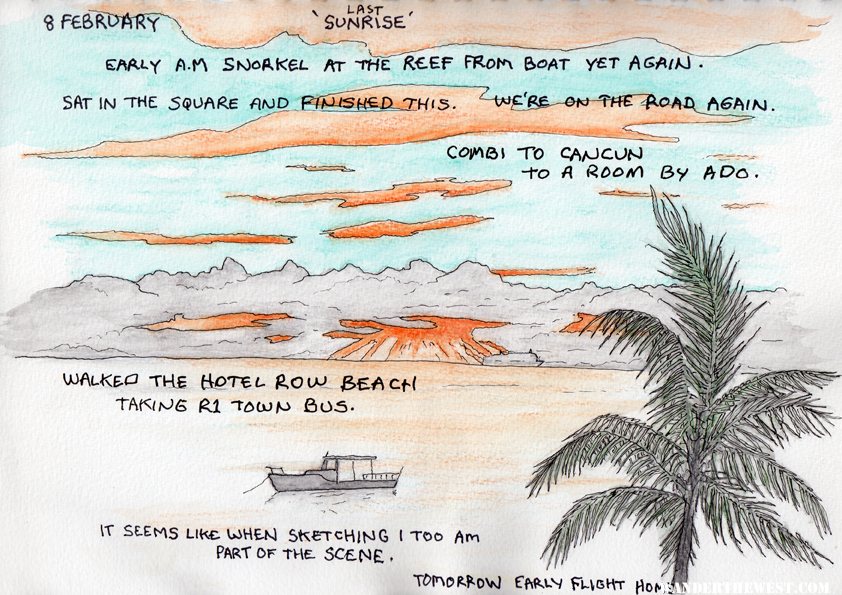 8 FEBRUARY
LAST
'SUNRISE'
EARLY A.M SNORKEL AT THE REEF FROM BOAT YET AGAIN.
SAT IN THE SQUARE AND FINISHED THIS. WE'RE ON THE ROAD AGAIN.
COMBI TO CANCUN
TO A ROOM BY ADO.
WALKED THE HOTEL ROW BEACH
TAKING R1 TOWN BUS.
IT SEEMS LIKE WHEN SKETCHING I TOO AM
PART OF THE SCENE.
TOMORROW EARLY FLIGHT HOME
WANDERTHEWEST.COM